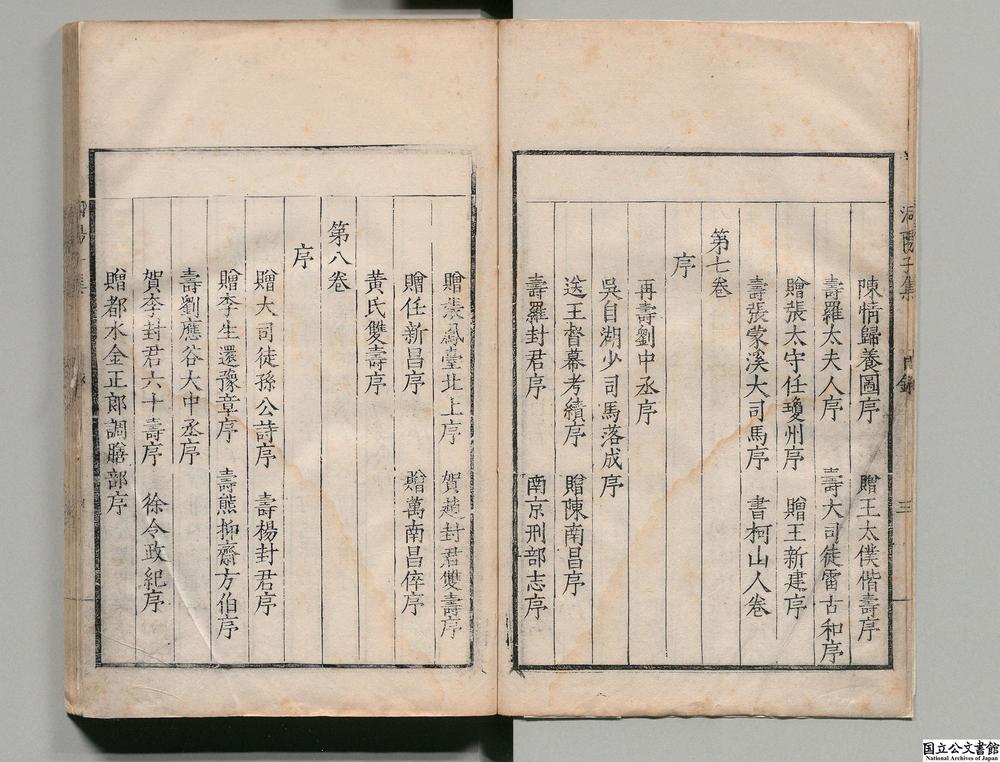 陳情歸養圖序　贈王太僕偕壽序
壽羅太夫人序　壽大司徒雷古和序
贈張太守任瓊州序　贈王新建序
壽張蒙溪大司馬序　書柯山人卷
第七卷
序
再壽劉中丞序
吳自湖少司馬落成序
送王督幕考績序　贈陳南昌序
壽羅封君序　南京刑部志序
贈張鳳臺北上序　賀趙封君雙壽序
贈任新昌序　贈萬南昌倅序
黃氏雙壽序
第八卷
序
贈大司徒孫公詩序　壽楊封君序
贈李生還豫章序　壽熊抑齋方伯序
壽劉應谷大中丞序
賀李封君六十壽序　徐令政紀序
贈都水金正郎調膳部序
洞陽子集　目錄　三
国立公文書館
National Archives of Japan